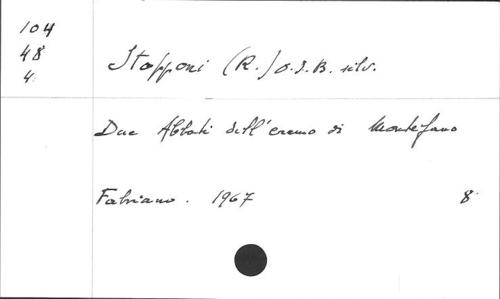 104
48
4
Stopponi (R.) O.S.B. silv.
Due Abbati dell'eremo di Montefano
Fabriano. 1967 8